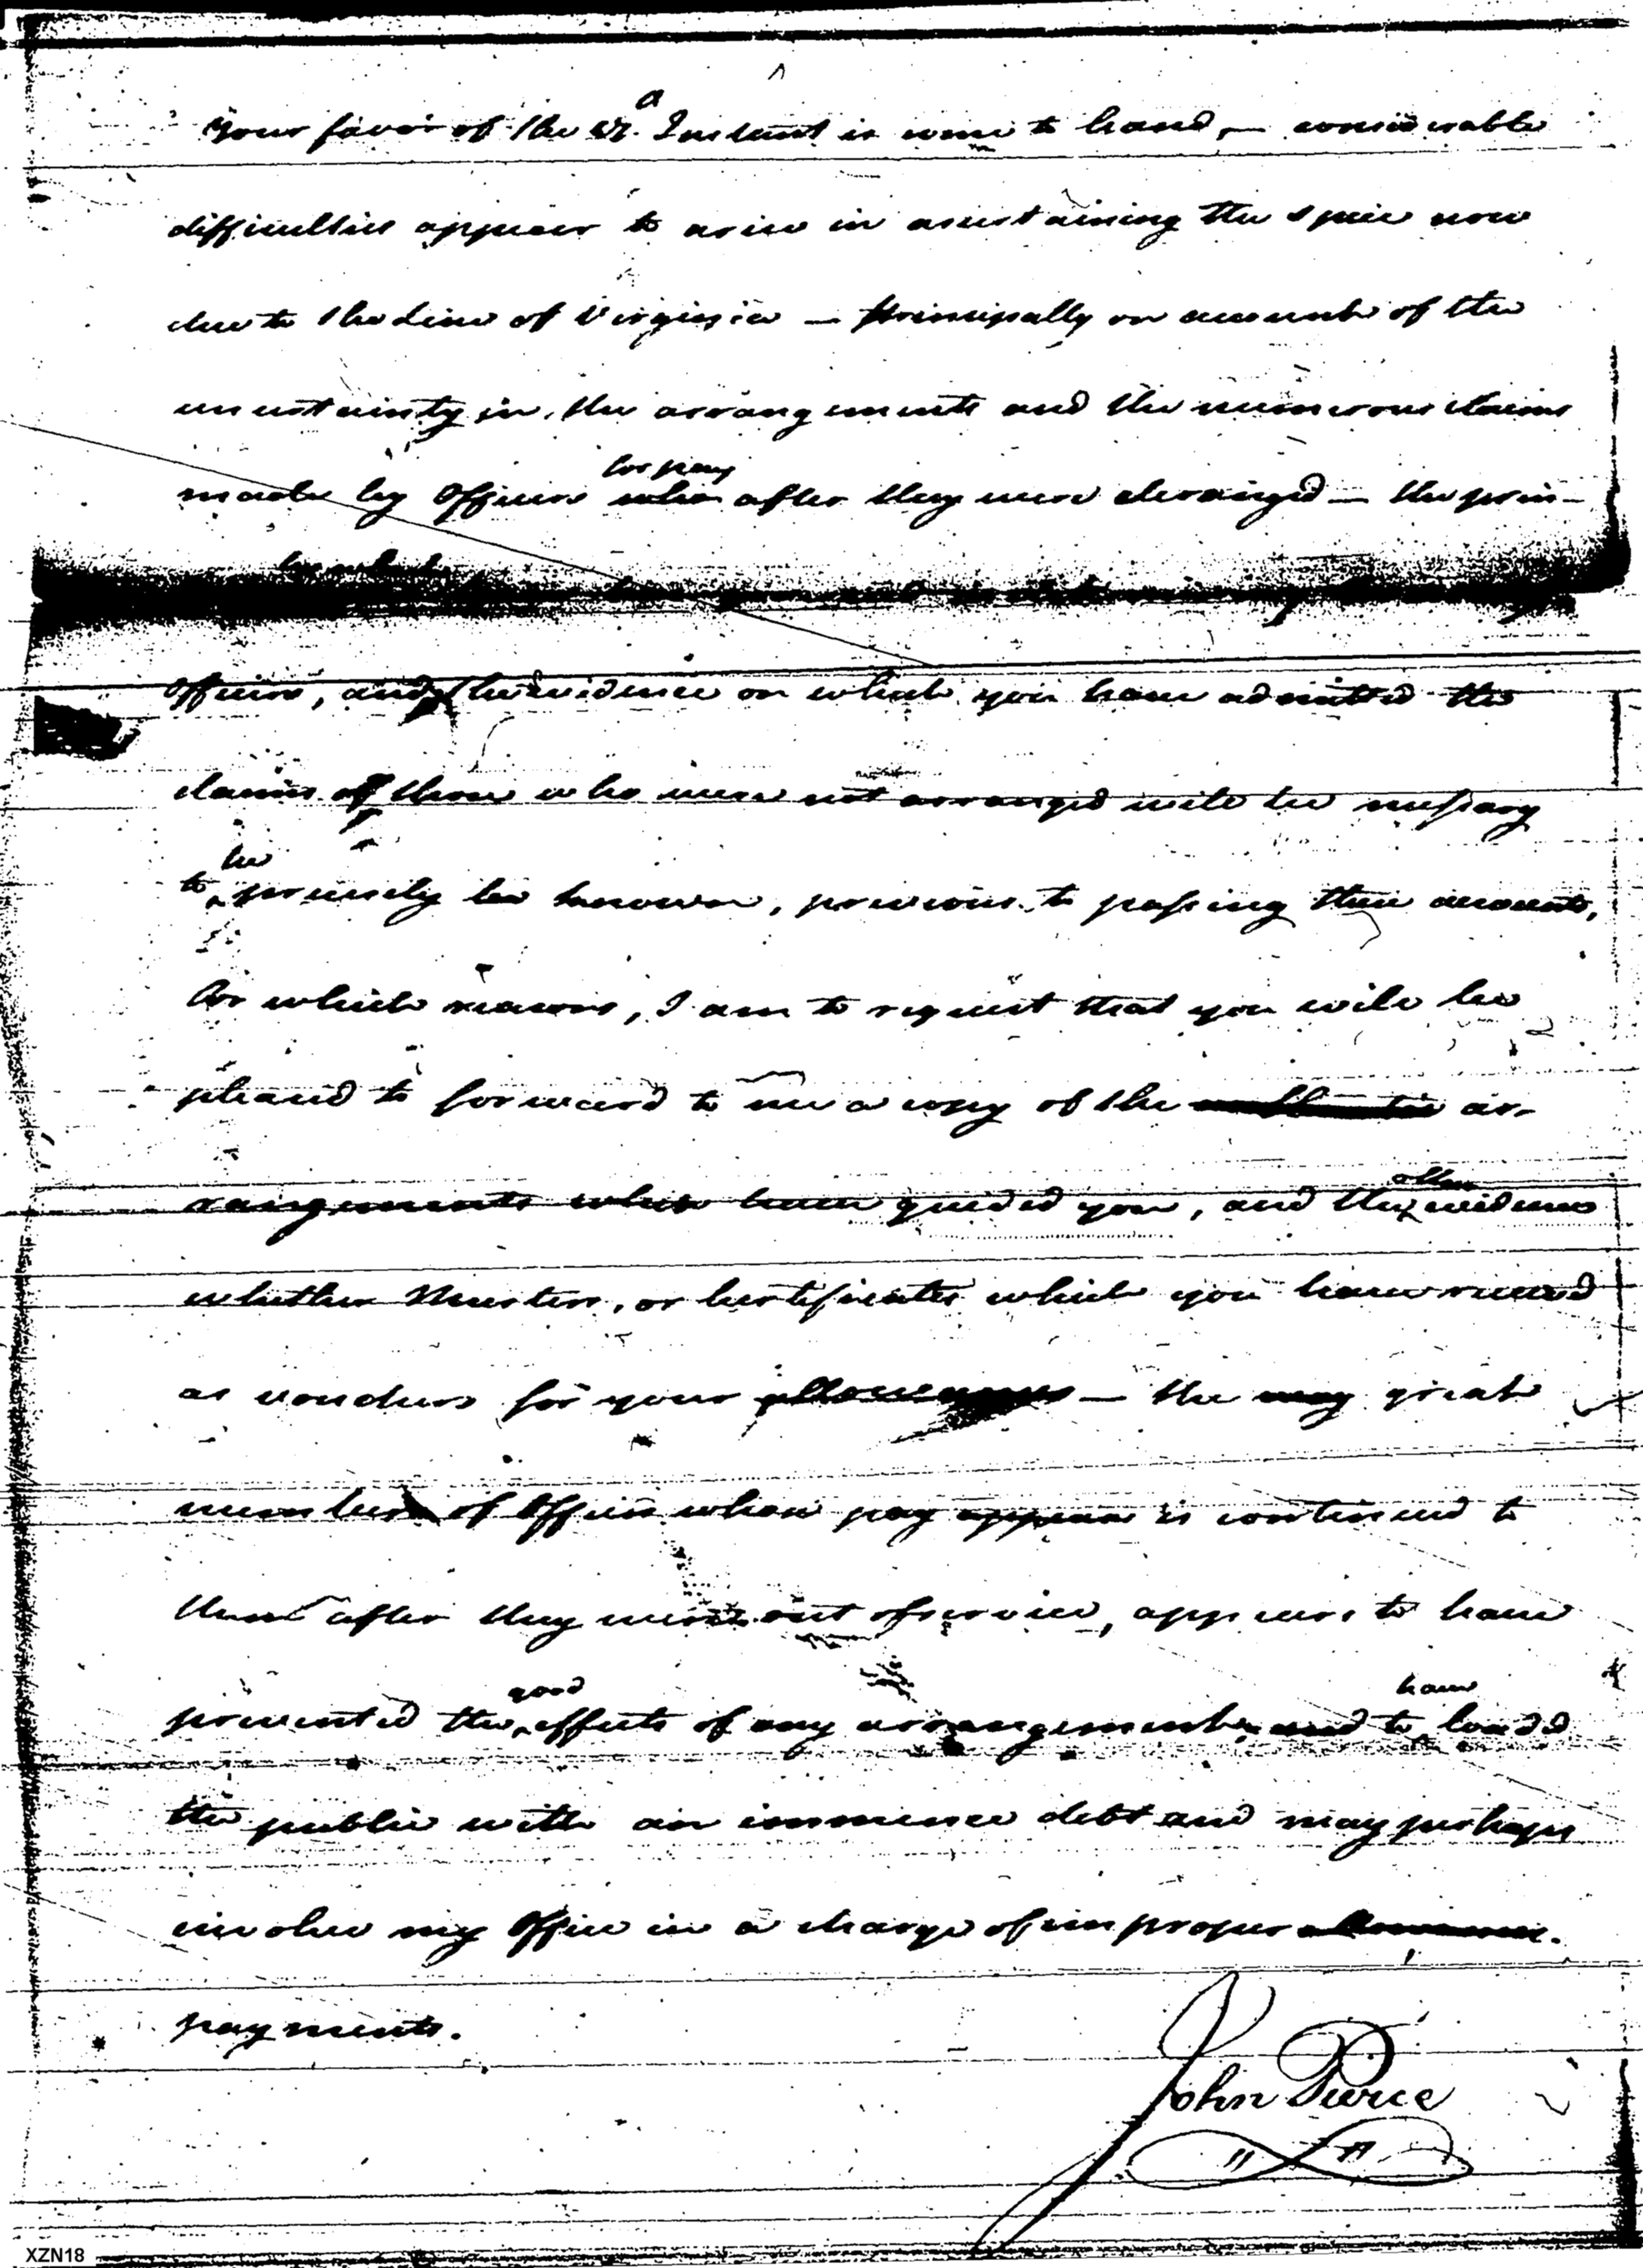 Your favor of the Instant is come to hand, — considerable
difficulties appear to arise in ascertaining the specie now
due to the Line of Virginia — principally on account of the
uncertainty in the arrangements and the numerous claims
for pay
made by Officers after they were deranged — the prin-
by which
Officers, and the evidence on which you have admitted the
claims of those who were not arranged will be necessary
be
to precisely be known, previous to passing their accounts,
for which reasons, I am to request that you will be
pleased to forward to me a copy of the ar-
rangements which have guided you, and the evidences
other
whether Musters, or Certificates which you have received
as vouchers for your allowances — the very great
numbers of Officers whose pay appears is continued to
them after they were out of service, appears to have
good
have
prevented the effects of any arrangements and to loaded
the public with an immence debt and may perhaps
involve my Office in a charge of improper allowances.
payments.
John Pierce
XZN18